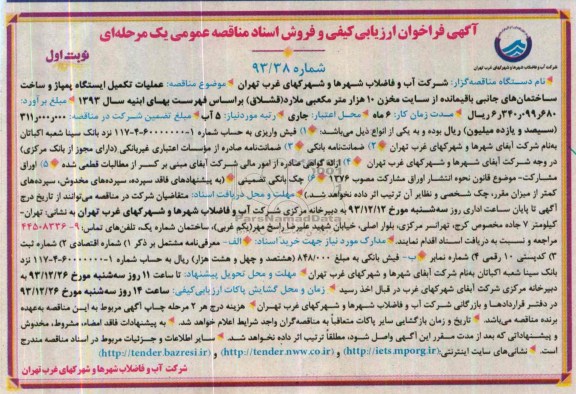 آگهی فراخوان ارزیابی کیفی و فروش اسناد مناقصه عمومی یک مرحله‌ای
نوبت اول
شماره ۹۳/۳۸
شرکت آب و فاضلاب شهرها و شهرکهای غرب تهران
نام دستگاه مناقصه‌گزار: شرکت آب و فاضلاب شهرها و شهرکهای غرب تهران موضوع مناقصه: عملیات تکمیل ایستگاه پمپاژ و ساخت
ساختمان‌های جانبی باقیمانده از سایت مخزن ۱۰ هزار متر مکعبی ملارد(قشلاق) براساس فهرست بهای ابنیه سال ۱۳۹۳ مبلغ برآورد:
۶٫۳۴۰٫۰۹۹٫۶۸۰ ریال مدت زمان کار: ۶ ماه محل اعتبار: جاری رتبه موردنیاز: ۵ آب مبلغ تضمین شرکت در مناقصه: ۳۱۱٫۰۰۰٫۰۰۰
(سیصد و یازده میلیون) ریال بوده و به یکی از انواع ذیل می‌باشند: ۱) فیش واریزی به حساب شماره ۱-۶۰۰۰۰۰۰-۴-۱۱۷ نزد بانک سینا شعبه اکباتان
به‌نام شرکت آبفای شهرها و شهرکهای غرب تهران ۲) ضمانتنامه بانکی ۳) ضمانتنامه صادره از مؤسسات اعتباری غیربانکی (دارای مجوز از بانک مرکزی)
در وجه شرکت آبفای شهرها و شهرکهای غرب تهران ۴) ارائه گواهی صادره از امور مالی شرکت آبفای مبنی بر کسر از مطالبات قطعی شده ۵) اوراق
مشارکت- موضوع قانون نحوه انتشار اوراق مشارکت مصوب ۱۳۷۶ ۶) چک بانکی تضمینی (به پیشنهادهای فاقد سپرده، سپرده‌های مخدوش، سپرده‌های
کمتر از میزان مقرر، چک شخصی و نظایر آن ترتیب اثر داده نخواهد شد) مهلت و محل دریافت اسناد: متقاضیان شرکت در مناقصه می‌توانند از تاریخ درج
آگهی تا پایان ساعت اداری روز سه‌شنبه مورخ ۹۳/۱۲/۱۲ به دبیرخانه مرکزی شرکت آب و فاضلاب شهرها و شهرکهای غرب تهران به نشانی: تهران-
کیلومتر ۷ جاده مخصوص کرج، تهرانسر مرکزی، بلوار اصلی، خیابان شهید علیرضا راسخ مهر(یکم غربی)، ساختمان شماره یک، تلفن‌های تماس: ۹-۴۴۵۰۸۳۳۶
مراجعه و نسبت به دریافت اسناد اقدام نمایند. مدارک مورد نیاز جهت خرید اسناد: الف- معرفی‌نامه مشتمل بر ذکر ۱) شماره اقتصادی ۲) شماره ثبت
۳) کدپستی ۱۰ رقمی ۴) شماره نمابر ب- فیش بانکی به مبلغ ۸۴۸/۰۰۰ (هشتصد و چهل و هشت هزار) ریال به حساب شماره ۱-۶۰۰۰۰۰۰-۴-۱۱۷ نزد
بانک سینا شعبه اکباتان به‌نام شرکت آبفای شهرها و شهرکهای غرب تهران مهلت و محل تحویل پیشنهاد: تا ساعت ۱۱ روز سه‌شنبه مورخ ۹۳/۱۲/۲۶ به
دبیرخانه مرکزی شرکت آبفای شهرها و شهرکهای غرب در قبال اخذ رسید زمان و محل گشایش پاکات ارزیابی‌کیفی: ساعت ۱۴ روز سه‌شنبه مورخ ۹۳/۱۲/۲۶
در دفتـر قراردادهـا و بازرگانی شـرکت آب و فاضلاب شـهرها و شـهرکهای غرب تهـران هزینه درج هر ۲ مرحله چاپ آگهی مربوط به این مناقصه به‌عهده
برنده مناقصه می‌باشد. تاریخ و زمان بازگشایی سایر پاکات متعاقباً به مناقصه‌گران واجد شرایط اعلام خواهد شد. به پیشنهادات فاقد امضاء، مشروط، مخدوش
و پیشنهاداتی که بعد از مدت مقرر این آگهی واصل شود، مطلقاً ترتیب اثر داده نخواهد شد. سایر اطلاعات و جزئیات مربوط در اسناد مناقصه مندرج
است. نشانی‌های سایت اینترنتی: (http://iets.mporg.ir) و (http://tender.nww.co.ir) و (http://tender.bazresi.ir)
شرکت آب و فاضلاب شهرها و شهرکهای غرب تهران